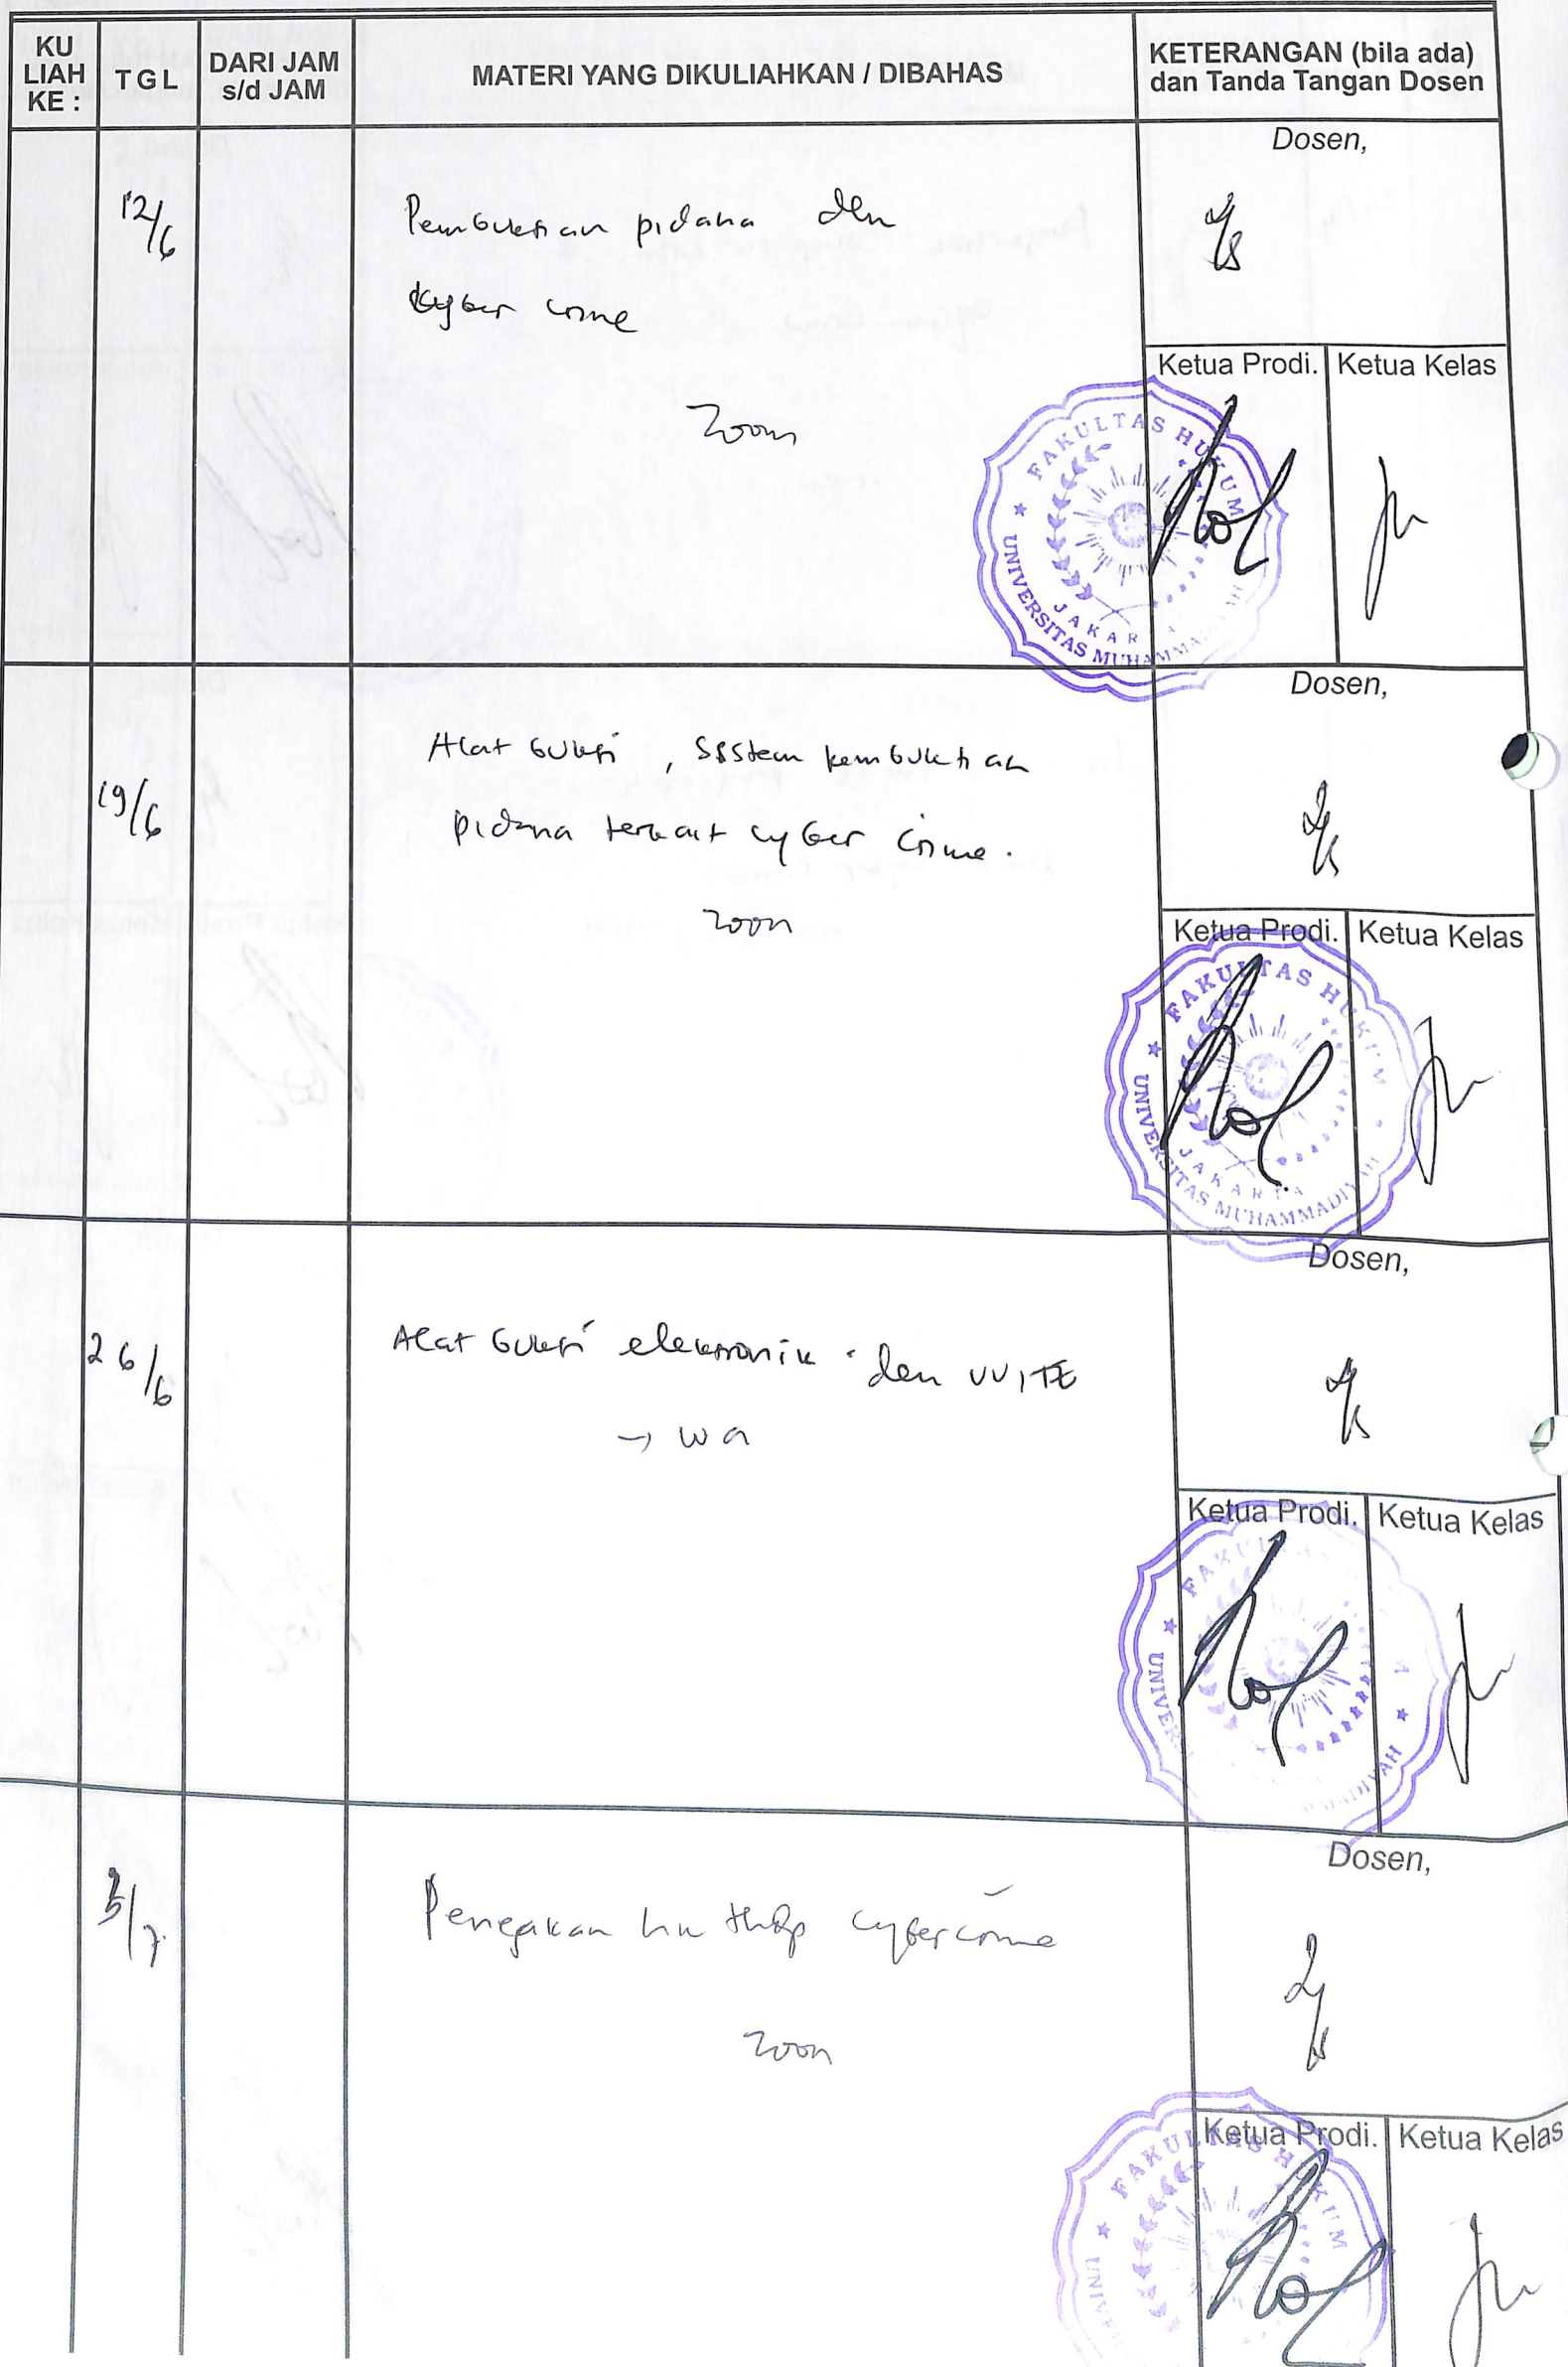 KU
LIAH
KE :
TGL
DARI JAM
s/d JAM
MATERI YANG DIKULIAHKAN / DIBAHAS
KETERANGAN (bila ada)
dan Tanda Tangan Dosen
12/6
Pembuktian pidana dan
cyber crime
Zoom
Dosen,
Ketua Prodi.
Ketua Kelas
FAKULTAS HUKUM
UNIVERSITAS MUHAMMA
JAKAR
19/6
Alat bukti , Sistem pembuktian
pidana terkait cyber crime.
zoom
Dosen,
Ketua Prodi.
Ketua Kelas
FAKULTAS HUKUM
UNIVERSITAS MUHAMMADIYAH
JAKARTA
26/6
Alat bukti elektronik dan UU ITE
→ wa
Dosen,
Ketua Prodi.
Ketua Kelas
FAKULTA
UNIVER
DIYAH
3/7
Penegakan hk thdp cybercrime
zoom
Dosen,
Ketua Prodi.
Ketua Kelas
FAKULTAS HUKUM
UNIVE